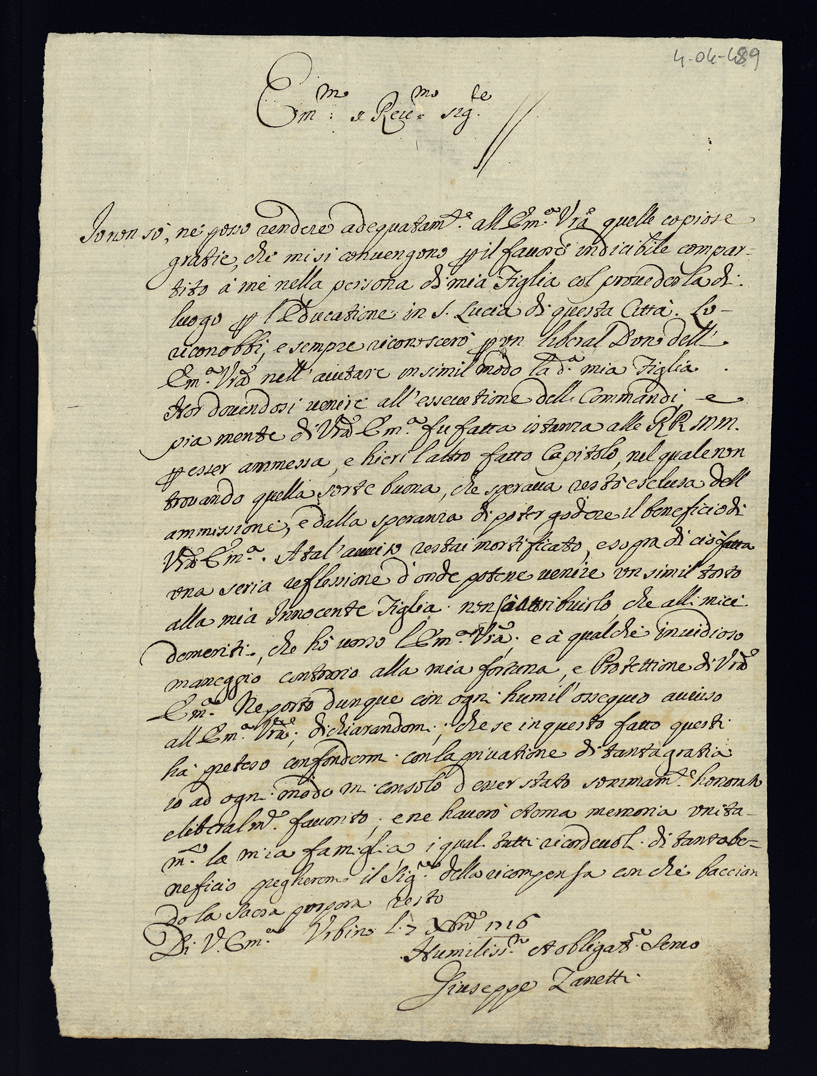 4-04-489
Em.mo e Rev.mo Sig.re
Io non sò, né posso rendere adequatam.te all'Em.a V.ra quelle copiose
gratie, che mi si convengono p il favore indicibile compar-
tito à me nella persona di mia Figlia col provederla di
luogo p l'Educatione in S. Lucia di questa Città. Lo
riconobbi, e sempre riconoscerò p un liberal Dono dell'
Em.a V.ra nell'aiutare in simil modo la d.a mia Figlia
Hor dovendosi venire all'essecutione delli Commandi, e
pia mente di V.ra Em.a fu fatta istanza alle RR. MM.
p esser ammessa, e hieri l'altro fatto Capitolo, nel quale non
trovando quella sorte buona, che sperava restò esclusa dell'
ammissione, e dalla speranza di poter godere il beneficio di
V.ra Em.a. A tal'aviso restai mortificato, e sopra di ciò fatta
una seria reflessione d'onde potere venire un simil torto
alla mia Innocente Figlia non sò attribuirlo che alli miei
demeriti, che hò verso l'Em.a V.ra, e à qualche invidioso
maneggio contrario alla mia fortuna, e Protettione di V.ra
Em.a. Ne porto dunque con ogni humil'ossequio aviso
all'Em.a V.ra, dichiarandomi, che se in questo fatto questi
hà preteso confondermi con la privatione di tanta gratia
io ad ogni modo mi consolo d'esser stato sommam.te honorato
e liberalm.te favorito, e ne haverò eterna memoria unita-
m.te la mia famiglia, i quali tutti ricordevoli di tanto be-
neficio pregheremo il Sig.re della ricompensa con che baccian
do la Sacra porpora resto
Di V. Em.a Urbino li 7 Xbre 1716
Humiliss.mo et obligat.mo Servo
Giuseppe Zanetti